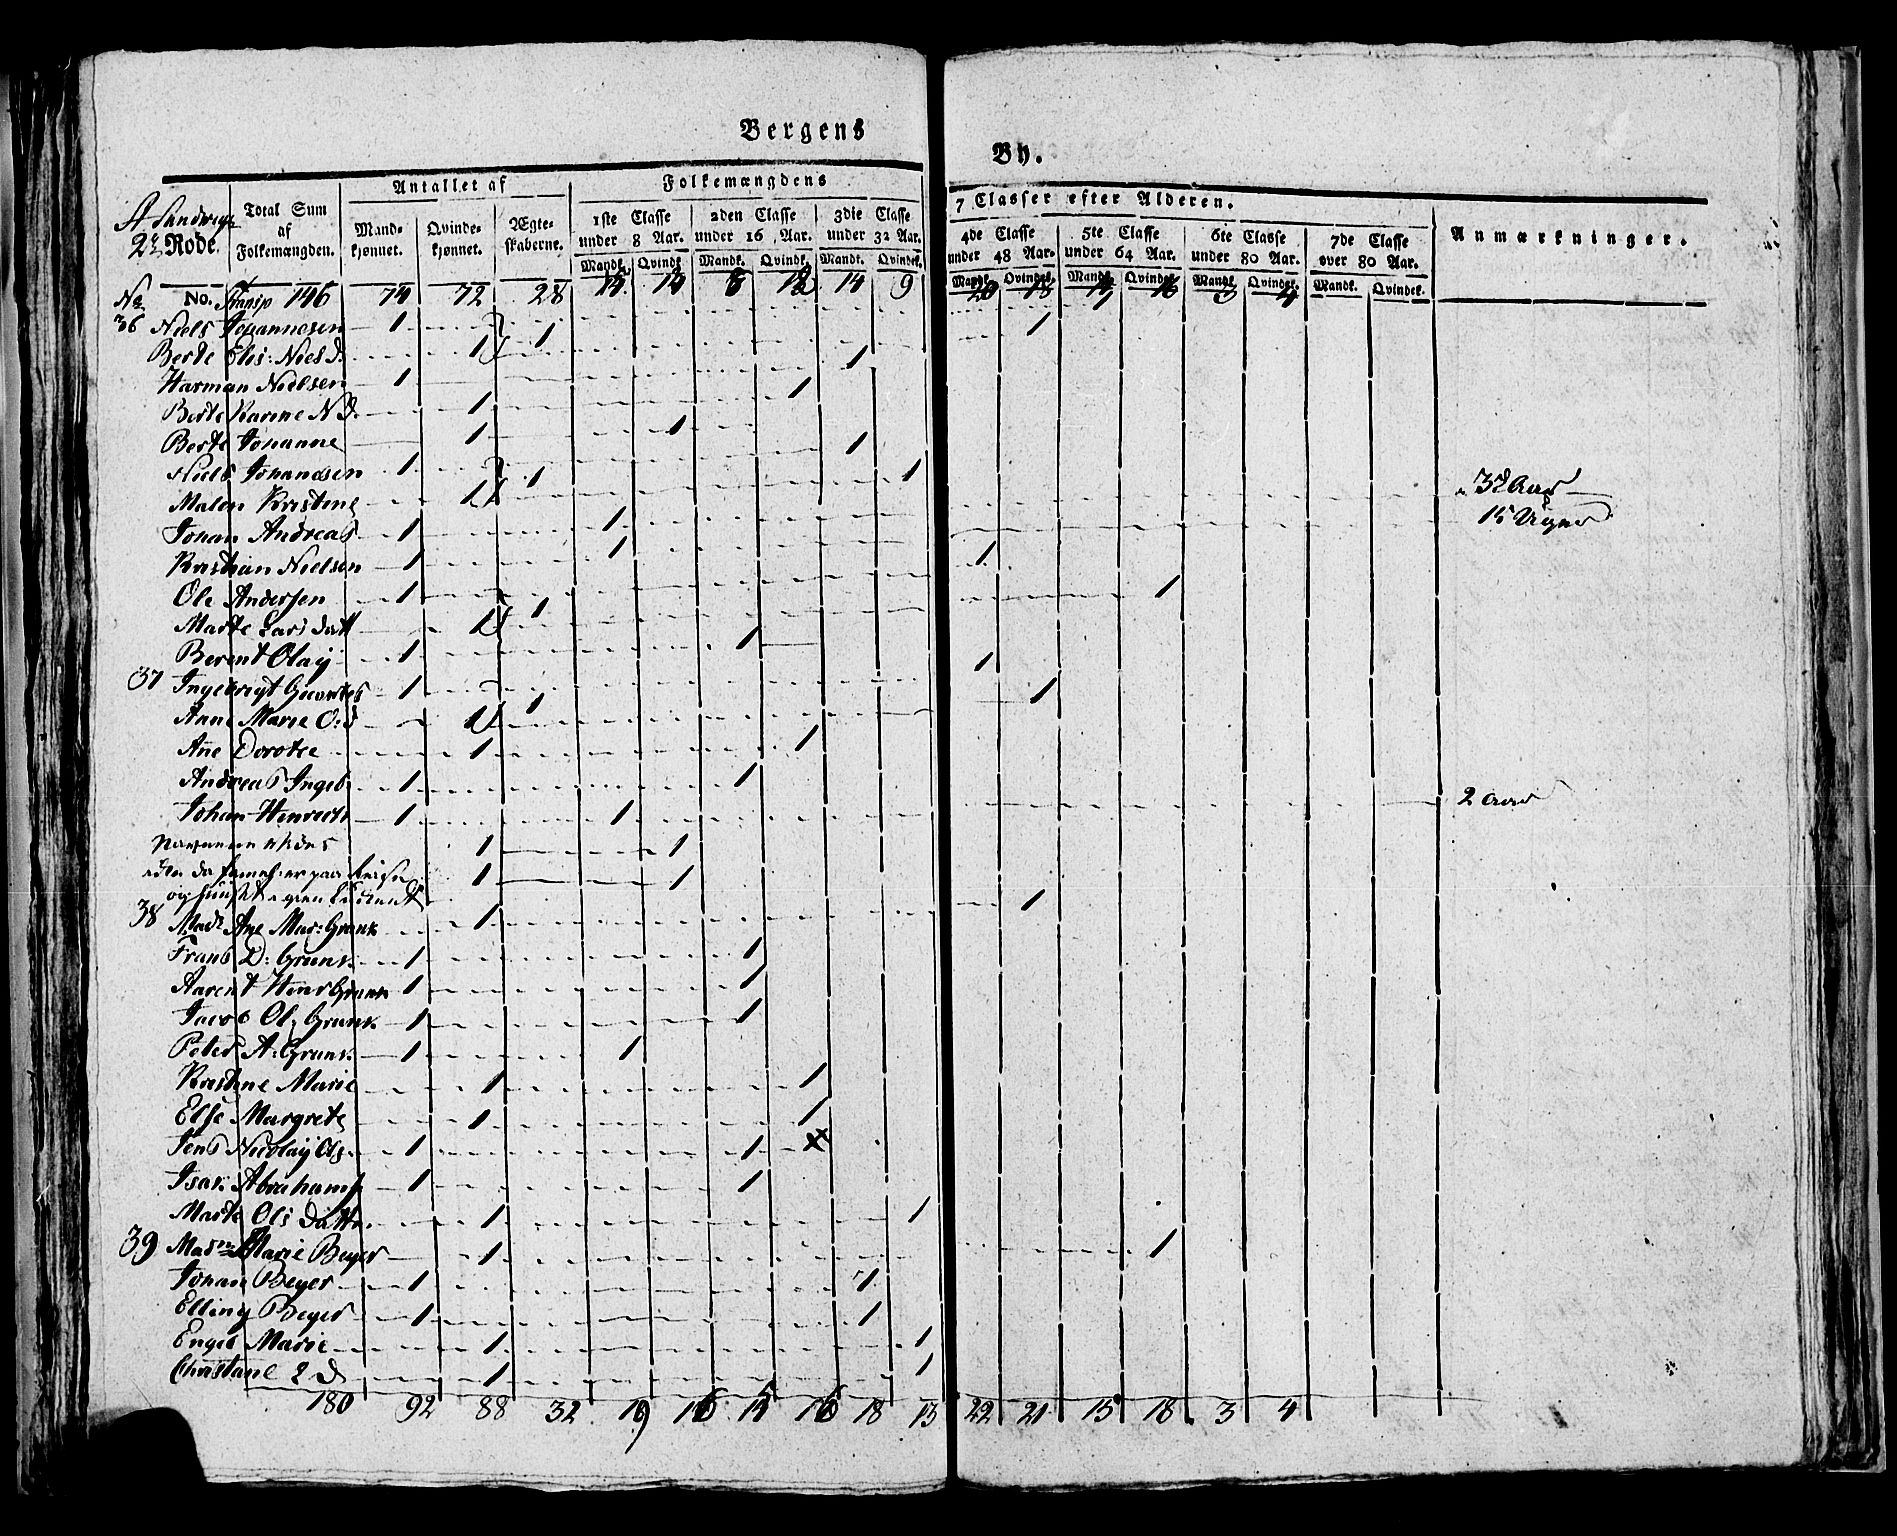 Bergens
By.
Sandvigs
2. Rode.
Total Sum af Folkemængden.
Antallet af
Mandkjønnet.
Qvindekjønnet.
Ægteskaberne.
Folkemængdens
7 Classer efter Alderen.
1ste Classe under 8 Aar.
2den Classe under 16 Aar.
3die Classe under 32 Aar.
4de Classe under 48 Aar.
5te Classe under 64 Aar.
6te Classe under 80 Aar.
7de Classe over 80 Aar.
Anmærkninger.
Mandk. Qvindek. Mandk. Qvindek. Mandk. Qvindek. Mandk. Qvindek. Mandk. Qvindek. Mandk. Qvindek. Mandk. Qvindek.
No. No. Transp 146 74 72 28 14 9 3 4
36 Niels Johannesen 1 1
Berte Elis: Niels d. 1 1
Harman Nielsen 1 1
Berte Karine N d. 1 1
Berte Johanne 1 1
Niels Johansen 1 1 1
Malen Kristine 1 32 Aar
Johan Andreas 1 1 15 Uger
Kristian Nielsen 1 1 1
Ole Andersen 1 1 1
Marte Lars datt 1
Berent Olay 1 1 1
37 Ingebrigt 1 1 1
Anne Marie O: d 1
Ane Dorotee 1 1
Andreas Ingeb. 1 1
Johan Henrich 1 1 2 Aar
1 1
1 1
38 Mad: Ane Mar: Grunk 1 1
Frans D: Grunk. 1 1
Aarent Grunk 1 1
Jacob Ol: Grunk. 1 1
Peter A: Grunk. 1 1
Kristine Marie 1 1
Else Margrete 1 1
Jens Nicolay Ols. 1 1 x
Isak Abrahams 1 1
Marte Ols datt. 1 1
39 Mad: Marie Beyer 1 1
Johan Beyer 1 1
Elling Beyer 1 1
Engel Marie 1 1
Christane 2 d 1 1
180 92 88 32 19 16 15 16 18 13 22 21 15 18 3 4